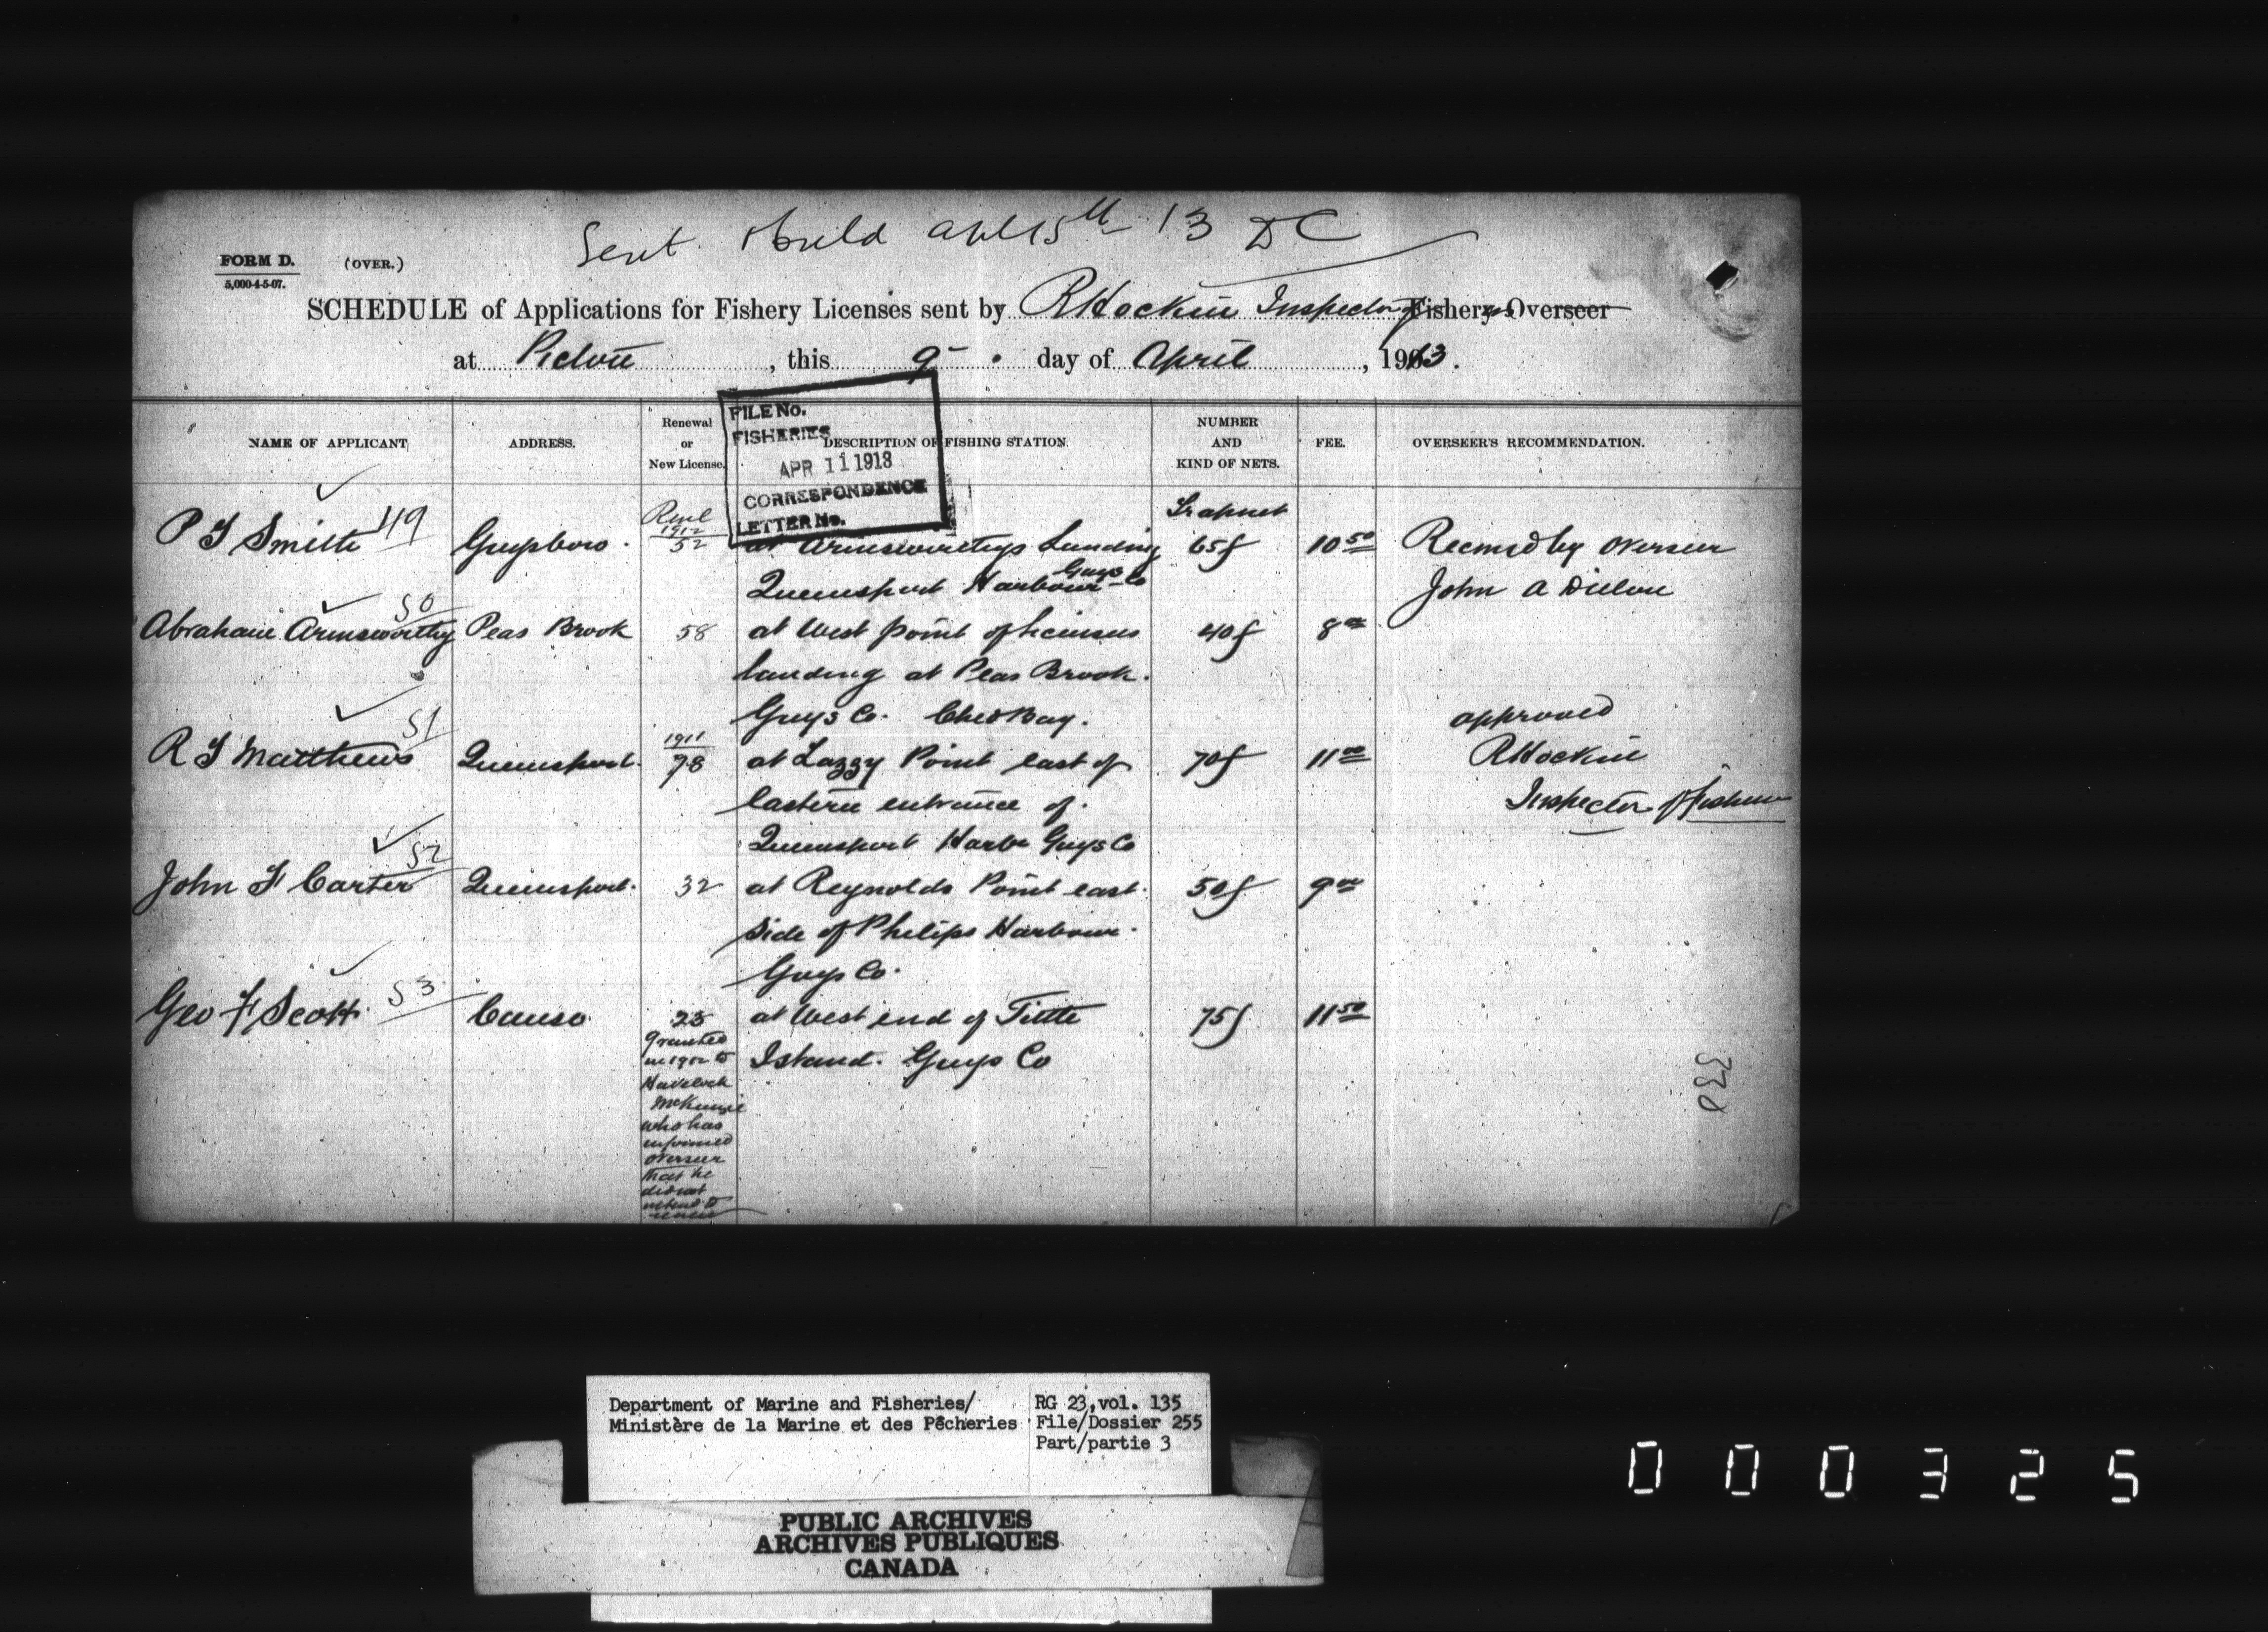 Sent Apl 15th 13 DC
FORM D. (OVER.)
5,000-4-5-07.
SCHEDULE of Applications for Fishery Licenses sent by R Hockin Inspector of Fishery Overseer
at Pictou, this 9 day of April, 1913.
FILE No.
FISHERIES
APR 11 1913
CORRESPONDENCE
LETTER No.
NAME OF APPLICANT ADDRESS. Renewal or New License. DESCRIPTION OF FISHING STATION. NUMBER AND KIND OF NETS. FEE. OVERSEER'S RECOMMENDATION.
Trapnet
P T Smith 49 Guysboro. 1912 52 at Armsworthys Landing 65f 10 50 Recmd by Overseer
Queensport Harbour Guys Co John A Dillon
Abraham Armsworthy 50 Peas Brook 58 at West point of
landing at Peas Brook. 40f 8 00
Guys Co. Ched Bay. approved
R T Matthews 51 Queensport. 1911 98 at Lazzy Point east of 70f 11 00 R Hockin
Eastern entrance of Inspector of Fisheries
Queensport Harbr Guys Co
John F Carter 52 Queensport. 32 at Reynolds Point east 50f 9 00
side of Philips Harbour.
Guys Co.
Geo F Scott 53 Canso 23 at West end of Tittle 75f 11 50
Island. Guys Co
granted
in 1912 to
Havelock
McKenzie
who has
informed
overseer
that he
did not
intend to
renew
330
Department of Marine and Fisheries/
Ministère de la Marine et des Pêcheries
RG 23, vol. 135
File/Dossier 255
Part/partie 3
PUBLIC ARCHIVES
ARCHIVES PUBLIQUES
CANADA
000325